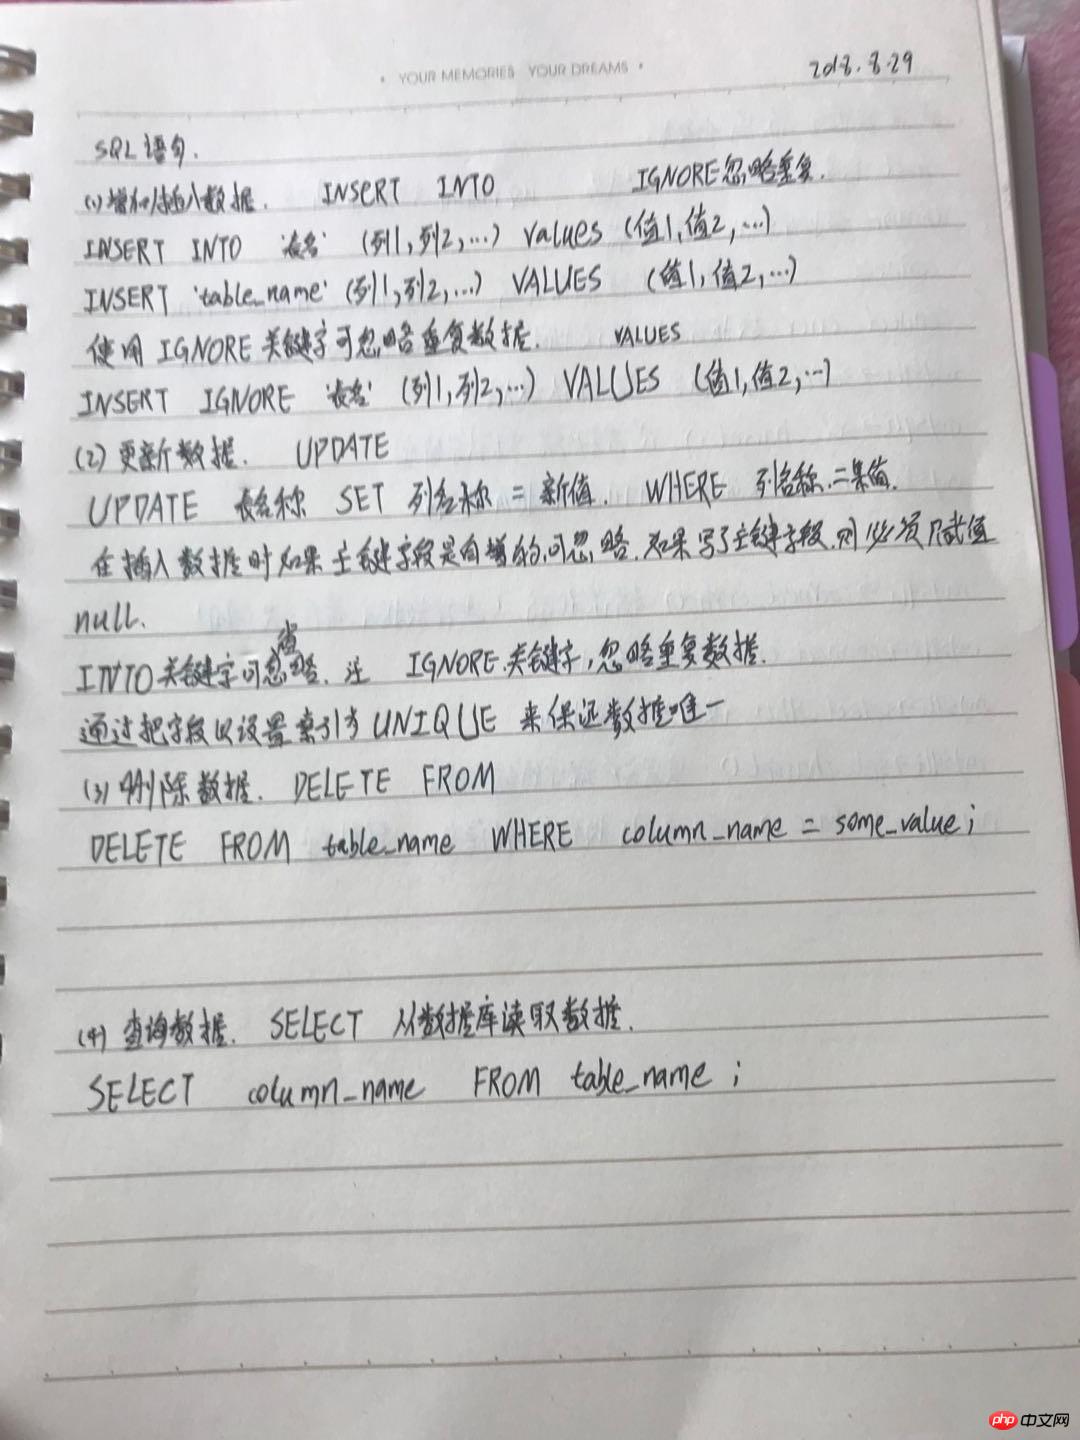 • YOUR MEMORIES YOUR DREAMS •
2018.8.29
SQL语句.
(1)增加/插入数据. INSERT INTO IGNORE忽略重复.
INSERT INTO `表名` (列1,列2,...) values (值1,值2,...)
INSERT `table_name` (列1,列2,...) VALUES (值1,值2,...)
使用IGNORE关键字可忽略重复数据. VALUES
INSERT IGNORE `表名` (列1,列2,...) VALUES (值1,值2,...)
(2)更新数据. UPDATE
UPDATE 表名称 SET 列名称 = 新值. WHERE 列名称.=某值.
在插入数据时如果主键字段是自增的,可忽略.如果写了主键字段.则必须赋值
null.
INTO关键字可忽略. 注 IGNORE.关键字,忽略重复数据.
通过把字段 设置索引为UNIQUE 来保证数据唯一
(3)删除数据. DELETE FROM
DELETE FROM table_name WHERE column_name = some_value;
(4)查询数据. SELECT 从数据库读取数据.
SELECT column_name FROM table_name;
php 中文网